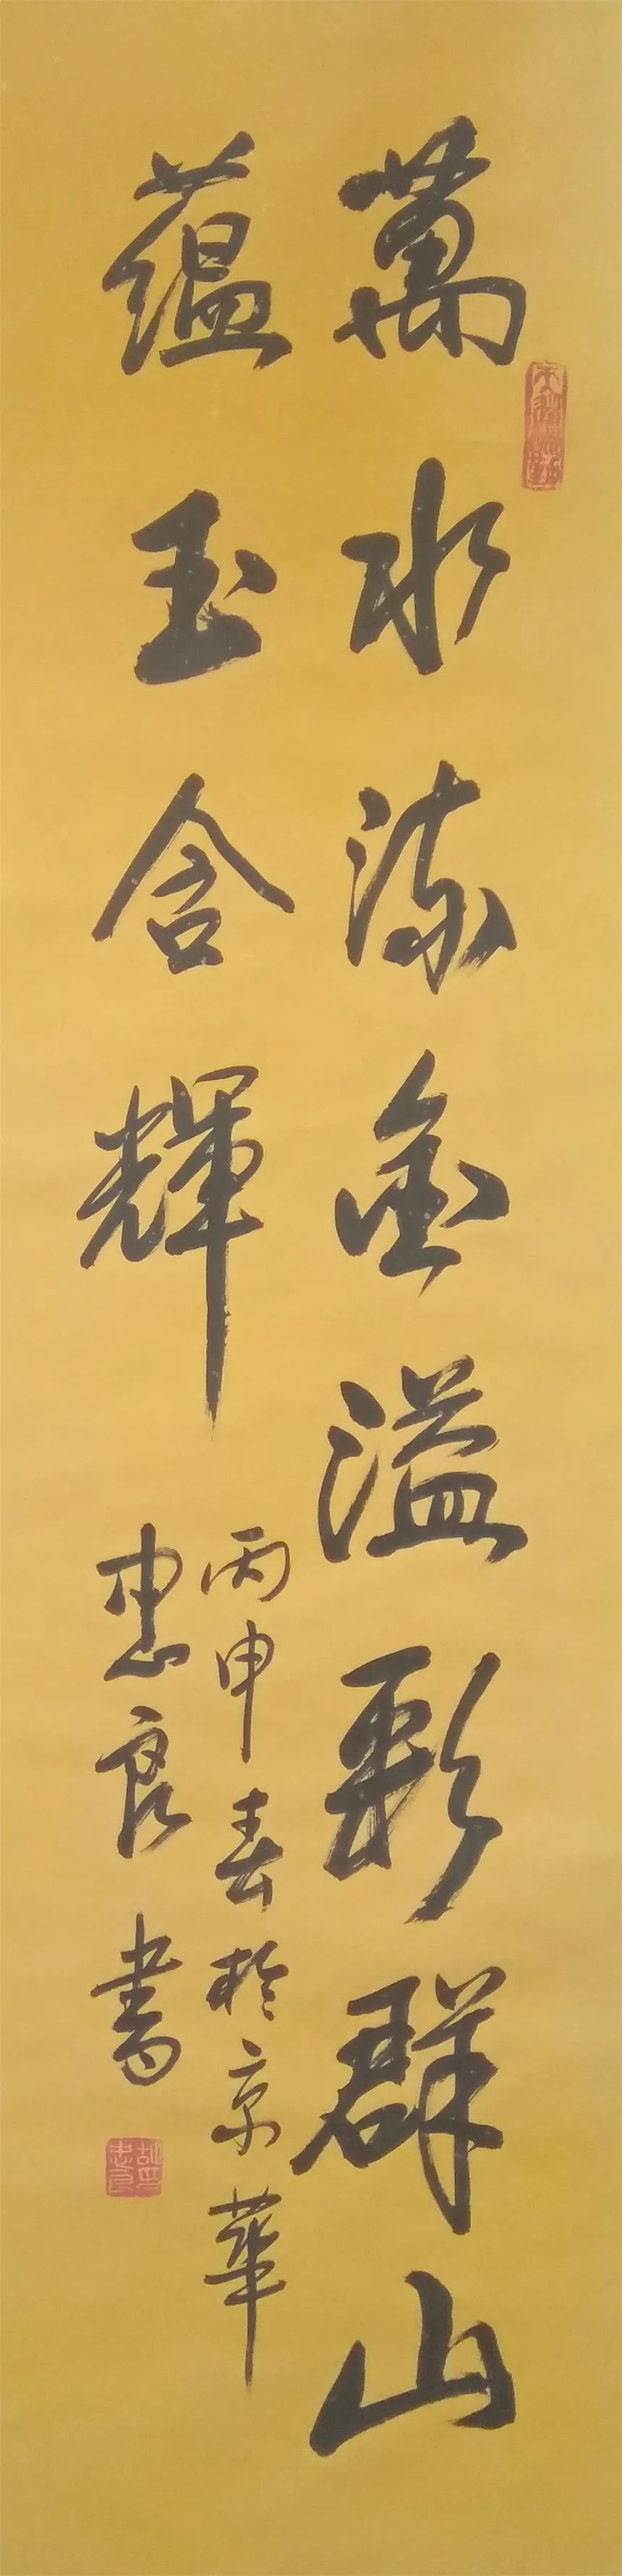 萬水流金溢彩群山
蕴玉含輝
丙申春於京華
忠良書